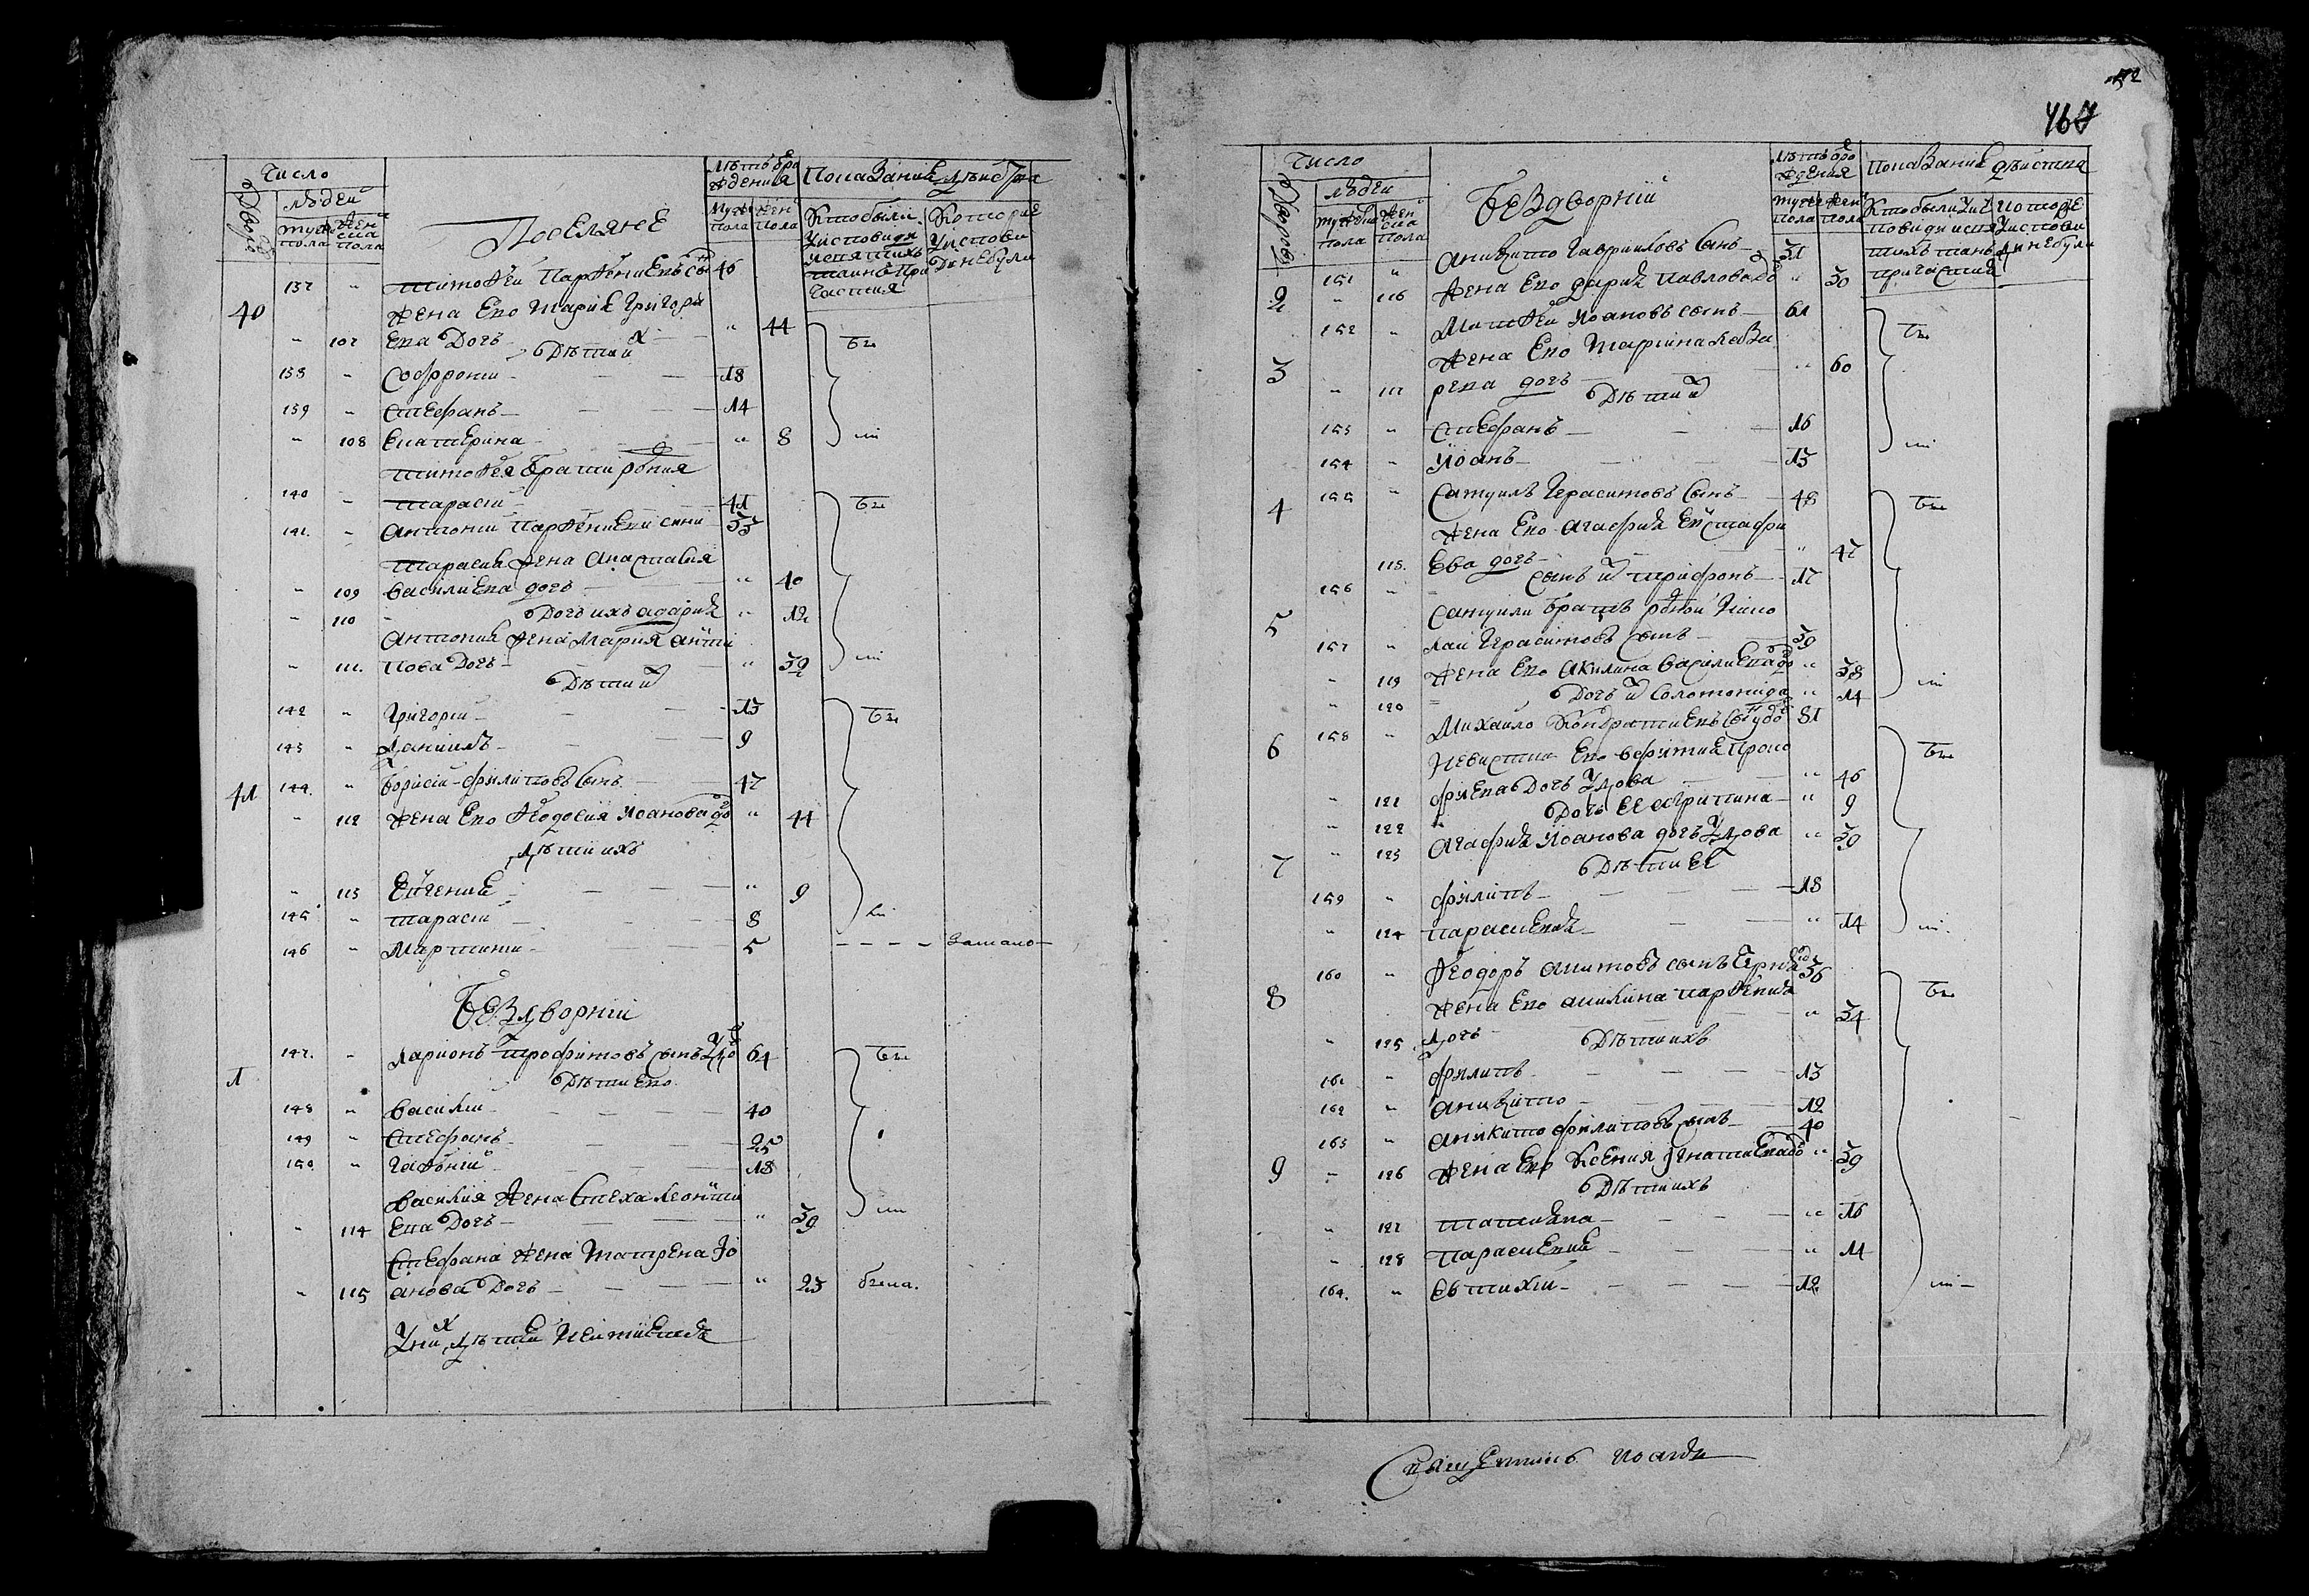 Число
Дворов
людей
мужеска пола
женска пола
Поселяне
Лѣтъ от рождения
Мужес пола
Жен пола
Показание действа
Кто были у исповеди и святих таинъ причастия
Которие у исповеди не були
137 " Тимофей Парфениевъ сынъ 46
40 Жена его Мария Григори
" 107 ева дочь " 44 бы
Дѣти их
138 " Софроний 18
139 " Стефанъ 14
" 108 Екатерина " 8 ли
Тимофея брати родния
140 " Тарасий 41 бы
141 " Антоний Парфениеви сини 33
Тарасия жена Анастасия
" 109 Василиева дочь " 40
" 110 Дочь ихъ " 12
Антония жена Мария Анти
" 111 пова дочь " 32 ли
Дѣти их
142 " Григорий 13 бы
143 " Даниилъ 9
41 144 " Борисий Филиповъ сынъ 47
" 112 Жена его Феодосия Иоанова до 44
Дѣти ихъ
" 113 Евгения " 9
145 " Тарасий 8 ли
146 " Мартинъ 5 - - - - замало
Бездворнии
1 147 " Ларионъ Трофимовъ сынъ удо 64 бы
Дѣти его
148 " Василий 40
149 " Стефанъ 25
150 " 18
Василия жена Стеха Леонти
" 114 ева дочь " 39 ли
Стефана жена Матрена Ио
" 115 анова дочь " 23 била
У них дѣтей не имѣется
172
467
Число
Дворов
людей
мужеска пола
женска пола
Бездворнии
Лѣтъ от рождения
мужес пола
Жен пола
Показание действа
Кто были у исповеди и святихъ танъ причастия
Которе у исповеди не були
2 151 " Аникито Гавриловъ сынъ 31
" 116 Жена его Дария Павлова до " 30
3 152 " Матфей Иоановъ сынъ 61 бы
Жена его Марина Лаза
" 117 рева дочь " 60
Дѣти их
153 " Стефанъ 16
154 " Иоанъ 13 ли
4 155 " Самуилъ Герасимовъ сынъ 48 бы
Жена его Агафия Евстафи
118 ева дочь " 47
156 " Сынъ их Трифонъ 17
5 Самуили братъ родной Нико
157 " лай Герасимовъ сынъ 39
" 119 Жена его Акилина Василиева до " 38
" 120 Дочь их Соломонида " 14 ли
6 158 " Михайло Кондратиевъ сынъ удо 81
Невистка его Ефимия Проко бы
" 121 фиева дочь удова " 46
" 122 Дочь ее Агрипина " 9
7 " 123 Агафия Иоанова дочь удова " 39
Дѣти ее
159 " Филипъ 18
" 124 Параскевия " 14 ли
8 160 " Феодоръ Акимовъ сынъ 36
Жена его Акилина Парфениева бы
" 125 дочь " 34
Дѣти ихъ
161 " Филипъ 13
162 " Аникито 12
9 163 " Аникито Филиповъ сынъ 40
" 126 Жена его Ксения Игнатиева до " 39
Дѣти ихъ
" 127 Татияна " 16
" 128 Параскевия " 14
164 " Евтихий 12 ли
Священникъ Иоанъ